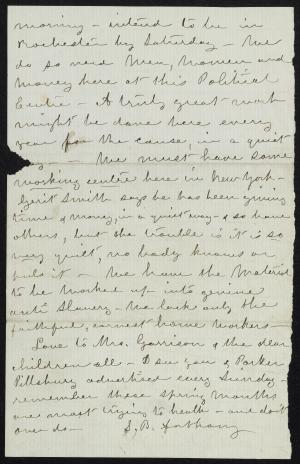 morning - intend to be in
Rochester by Saturday - We
do so need Men, Women and
Money here at this Political
Centre - A truly great work
might be done here every
year for the cause, in a quiet
way - We must have some
working centre here in New York -
Gerrit Smith says he has been giving
time & money, in a quiet way - & so have
others, but the trouble is it is so
very quiet, no body knows or
feels it - We have the Material
to be worked up into genuine
anti Slavery - We lack only the
faithful, earnest home workers -
Love to Mrs. Garrison & the dear
children all - I see you & Parker
Pillsbury advertised every Sunday -
remember these spring months
are most trying to health - and don't
over do - S. B. Anthony